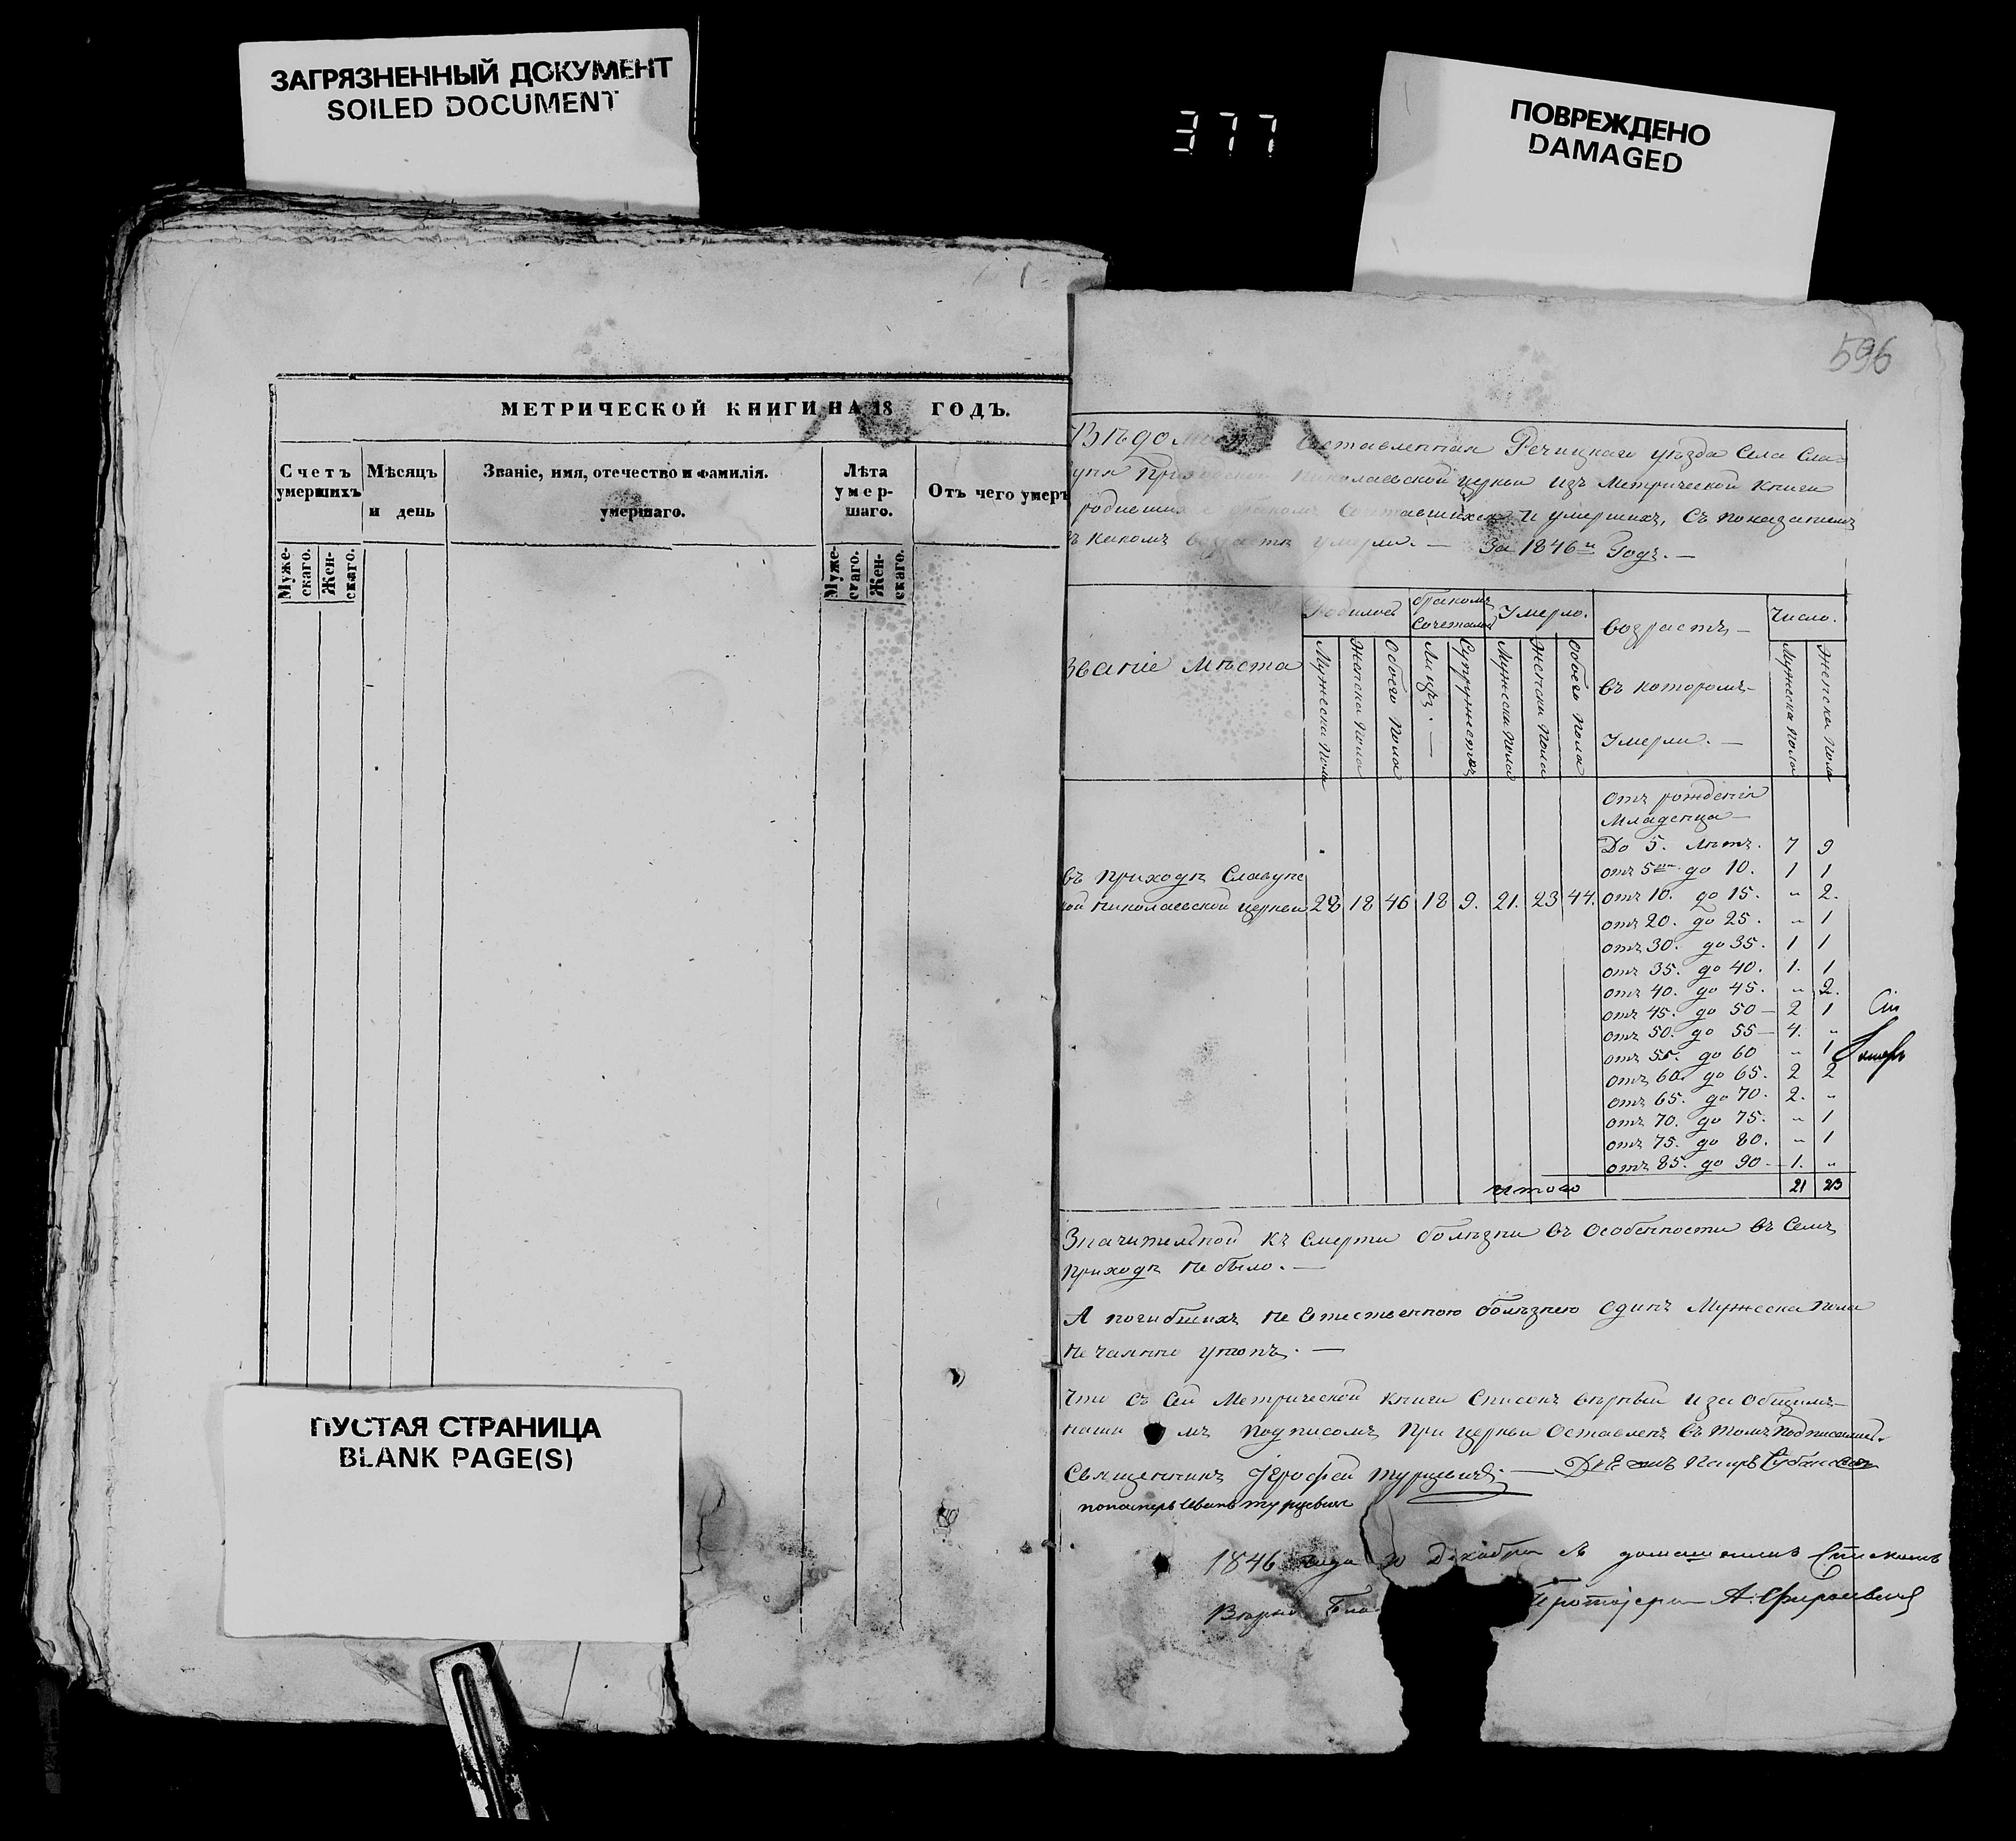 ЗАГРЯЗНЕННЫЙ ДОКУМЕНТ
SOILED DOCUMENT
377
ПОВРЕЖДЕНО
DAMAGED
596
МЕТРИЧЕСКОЙ КНИГИ НА 18 ГОДЪ.
Счетъ умершихъ
Мѣсяцъ и день
Званіе, имя, отечество и фамилія. умершаго.
Лѣта умер-шаго.
Отъ чего умеръ
Муже-скаго.
Жен-скаго.
Муже-скаго.
Жен-скаго.
составленная Речицкаго уѣзда Села Сла-
Николаевской церкви изъ Метрической Книги
и умершихъ, съ показаніемъ
какомъ возрастѣ умерли. — За 1846й Годъ. —
Званіе Мѣста
Родилось
бракомъ Сочеталось
Умерло.
Возрастъ —
въ которомъ —
Умерли. —
Число.
Мужеска Пола
Женска Пола
Обоего Пола
Лицъ. —
Супружествъ
Мужеска Пола
Женска Пола
Обоего Пола
Мужеска Пола
Женска Пола
отъ рожденія
Младенца —
До 5. лѣтъ. 7 9
отъ 5ти до 10. 1 1
въ Приходѣ Славунс
кой Николаевской церкви 28 18 46 18 9. 21. 23 44.
отъ 10. до 15. „ 2.
отъ 20. до 25. „ 1
отъ 30. до 35. 1 1
отъ 35. до 40. 1. 1
отъ 40. до 45. „ 2.
отъ 45. до 50 — 2 1
отъ 50. до 55 — 4. „
отъ 55. до 60 „ 1
отъ 60. до 65. 2 2
отъ 65. до 70. 2. „
отъ 70. до 75. „ 1
отъ 75. до 80. „ 1
отъ 85. до 90. — 1. „
Итого 21 23
Значительной къ Смерти болѣзни въ Особенности въ Семъ
Приходѣ не было. —
А погибшихъ не Естественною болѣзнею одинъ Мужеска Пола
нечаянно утопъ. —
Что съ Сей Метрической Книги Списокъ вѣрный и за Общимъ —
подписомъ при церкви Оставленъ въ томъ подписались.
Священникъ Іерофей Турцевичъ. —
пономарь Иванъ Турцевичъ
1846 года Декабря съ домашнимъ Спискомъ
Протоіерей А.
ПУСТАЯ СТРАНИЦА
BLANK PAGE(S)